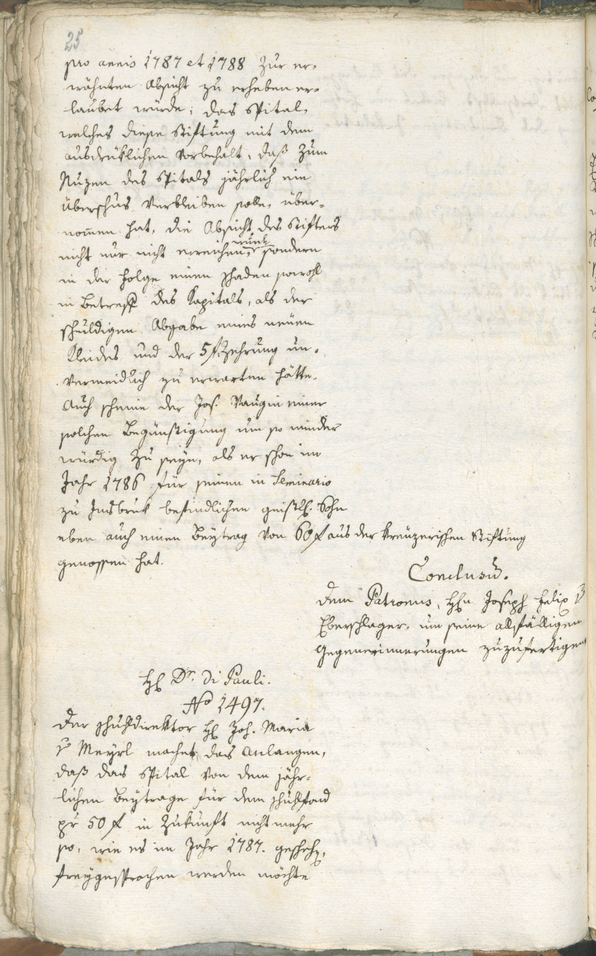 25
pro annis 1787 et 1788 zur er-
wähnten Absicht zu erheben er-
laubet würde; das Spital,
welches diese Stiftung mit dem
ausdrüklichen Vorbehalt, daß zum
Nuzen des Spitals jährlich ein
Überschus verbleiben solle, über-
nommen hat, die Absicht des Stifters
nicht nur nicht erreichen, sondern
in der Folge einen Schaden sowohl
in Betreff des Kapitals, als der
schuldigen Abgabe eines neuen
Kleides und der 5 f Zehrung un-
vermeidlich zu erwarten hätte.
Auch scheine der Jos. einer
solchen Begünstigung um so minder
würdig zu seyn, als er schon im
Jahr 1786 für seinen in Seminario
zu Insbruk befindlichen geistl. Sohn
eben auch einen Beytrag von 60 f aus der kreuzerischen Stiftung
genossen hat.
Conclusum.
Dem Patronus, Hhn Joseph Felix v
Eberschlager, um seine allfälligen
Gegenerinnerungen zuzufertigen
H Dr. Di Pauli.
No 1497.
Der Schuldirektor H Joh. Maria
v Meyrl machet das Anlangen,
daß das Spital von dem jähr-
lichen Beytrage für dem Schulfond
pr 50 f in Zukunft nicht mehr
so, wie es im Jahr 1787. gescheh,
freygesprochen werden möchte